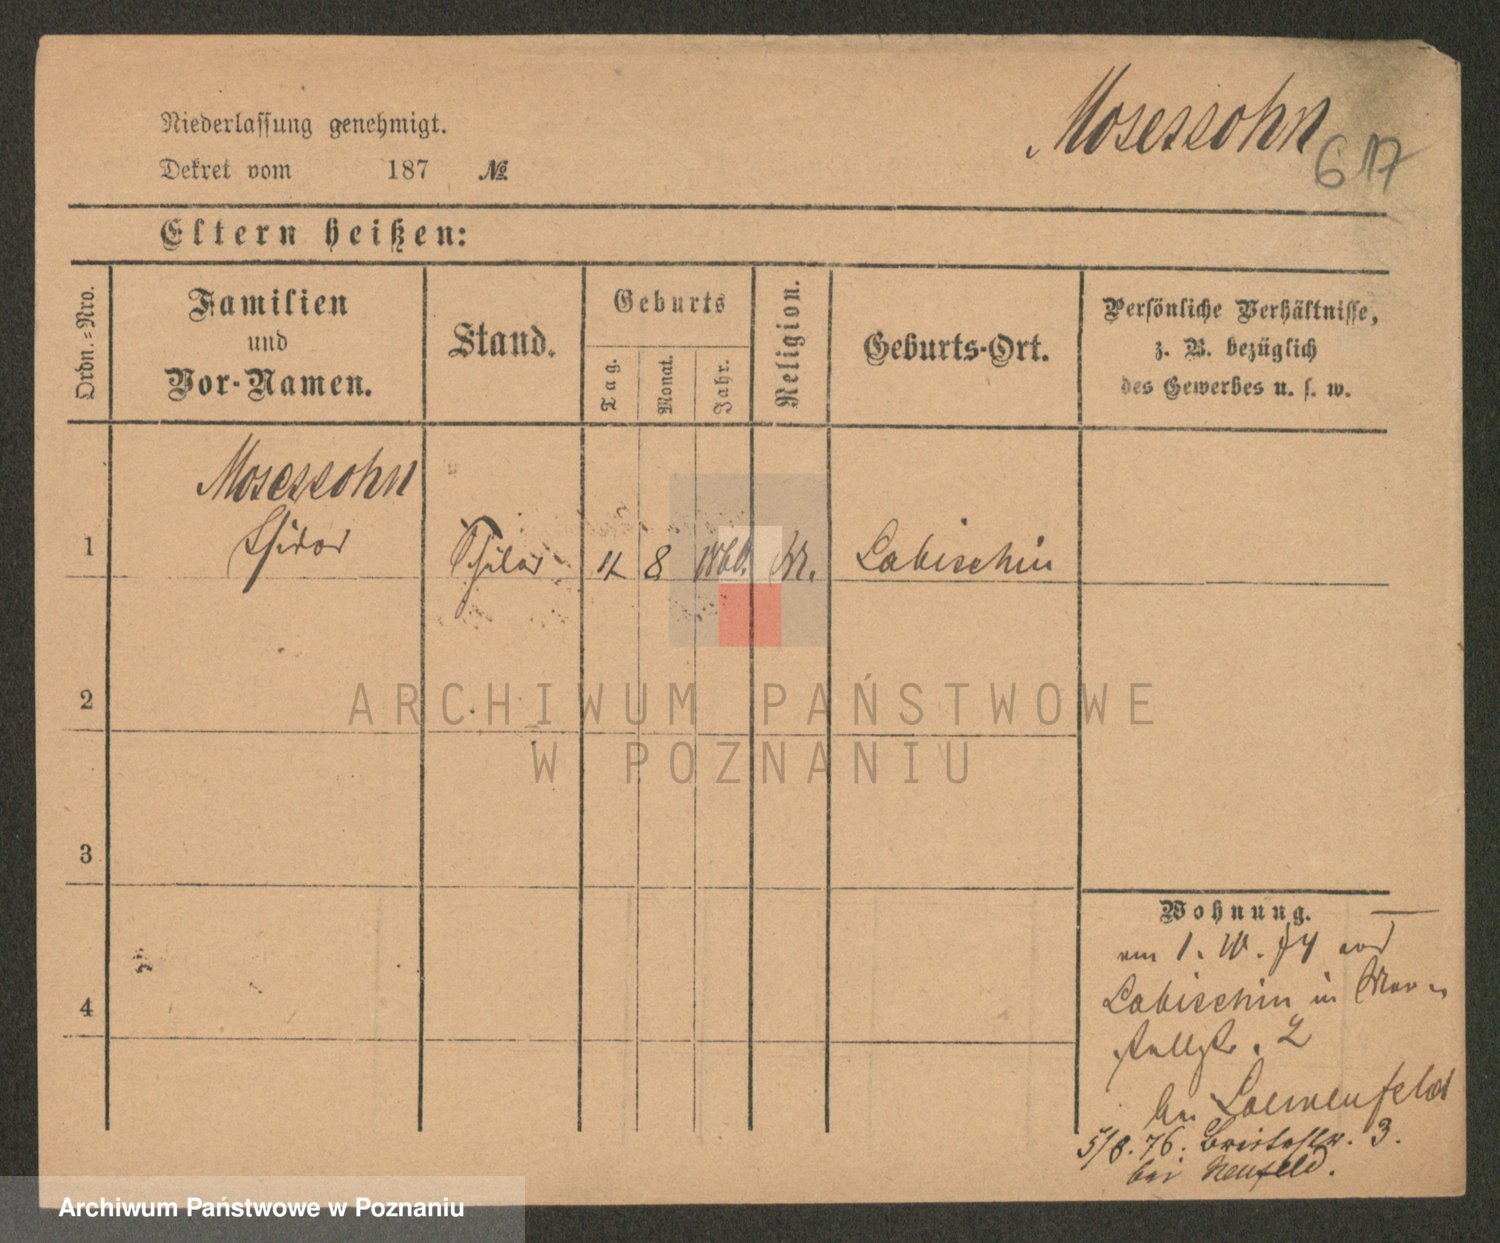 Mosessohn
617
Niederlassung genehmigt.
Dekret vom 187 №
Eltern heißen:
Ordn.-Nro.
Familien
und
Vor-Namen.
Stand.
Geburts
Tag.
Monat.
Jahr.
Religion.
Geburts-Ort.
Persönliche Verhältnisse,
z. B. bezüglich
des Gewerbes u. s. w.
Mosessohn
1 Isidor Schüler 4 8 1860. Labischin
2
3
4
Wohnung.
am 1. 74 aus
Labischin in
2
bei Loewenfeld
5/8. 76. 3.
bei Neufeld.
ARCHIWUM PAŃSTWOWE
W POZNANIU
Archiwum Państwowe w Poznaniu